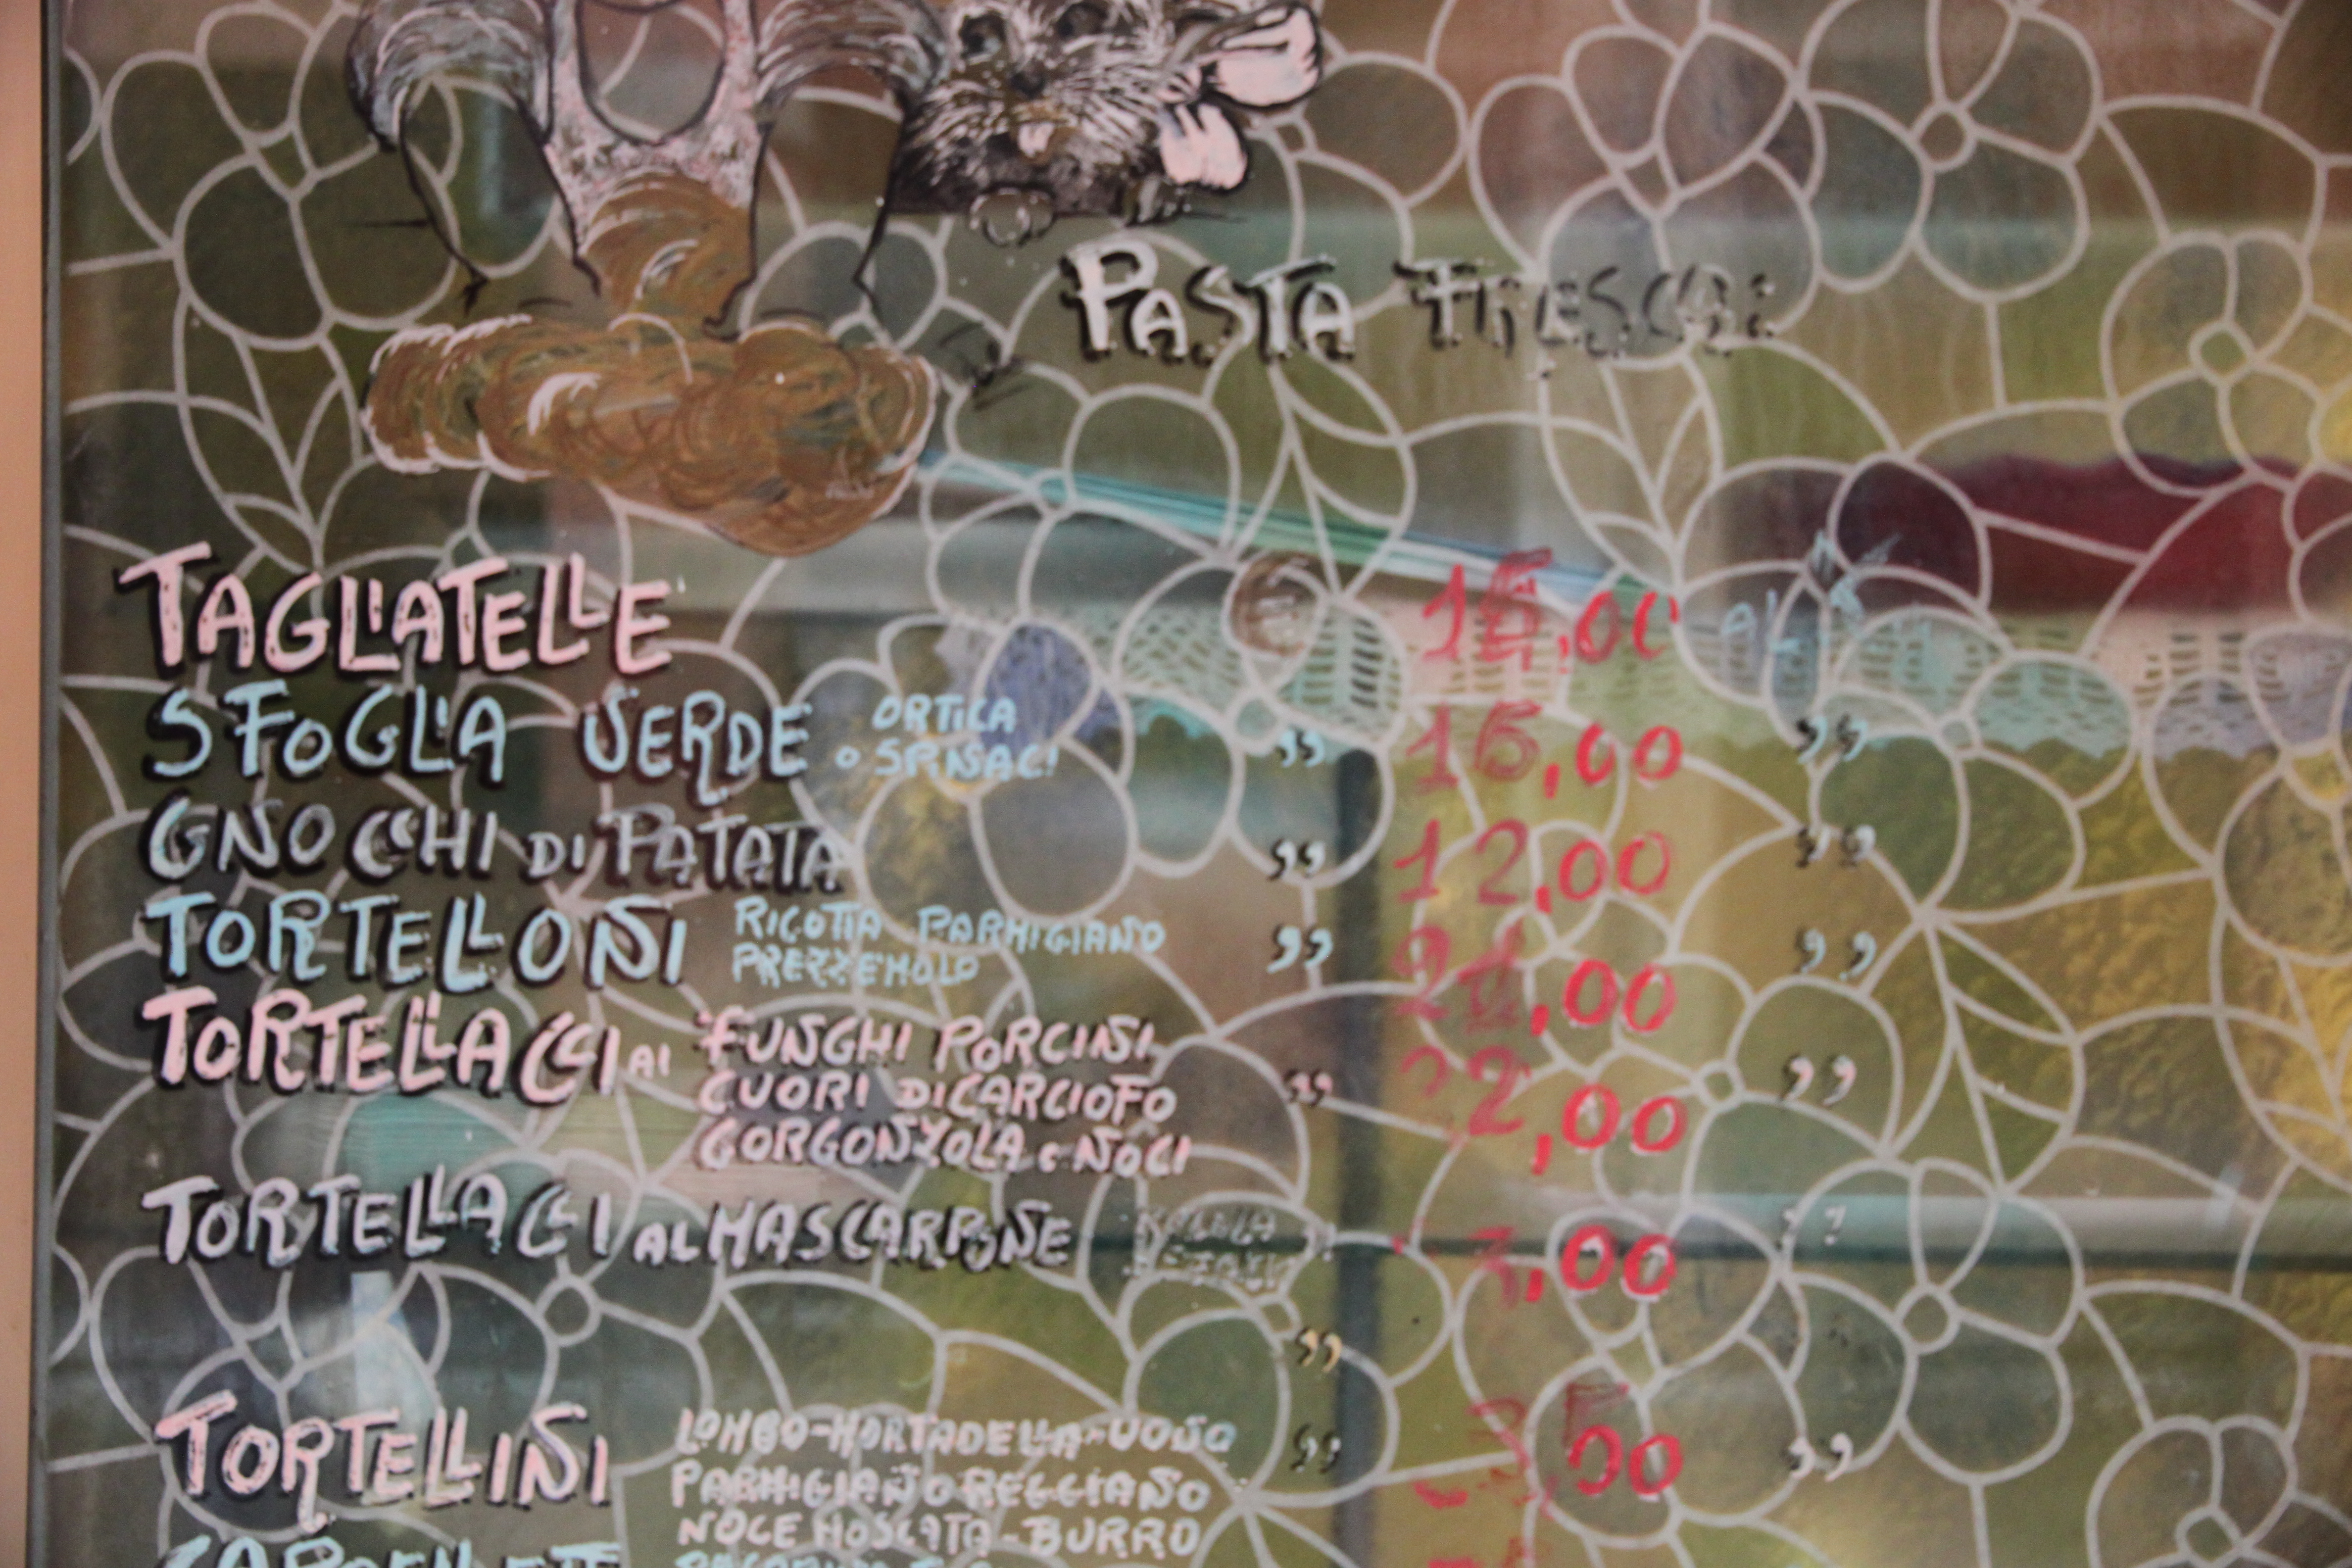 PASTA FRESCA:
TAGLIATELLE € 16,00 AL
SFOGLIA VERDE ORTICA „ 16,00 „
O SPINACI
GNOCCHI DI PATATA „ 12,00 „
TORTELLONI RICOTTA PARMIGIANO „ ,00 „
PREZZEMOLO
TORTELLACCI AI FUNGHI PORCINI „ 22,00 „
CUORI DI CARCIOFO
GORGONZOLA e NOCI
TORTELLACCI AL MASCARPONE ,00
TORTELLINI LOMBO-MORTADELLA-UOVO „ 35,00 „
PARMIGIANO REGGIANO
NOCE MOSCATA-BURRO